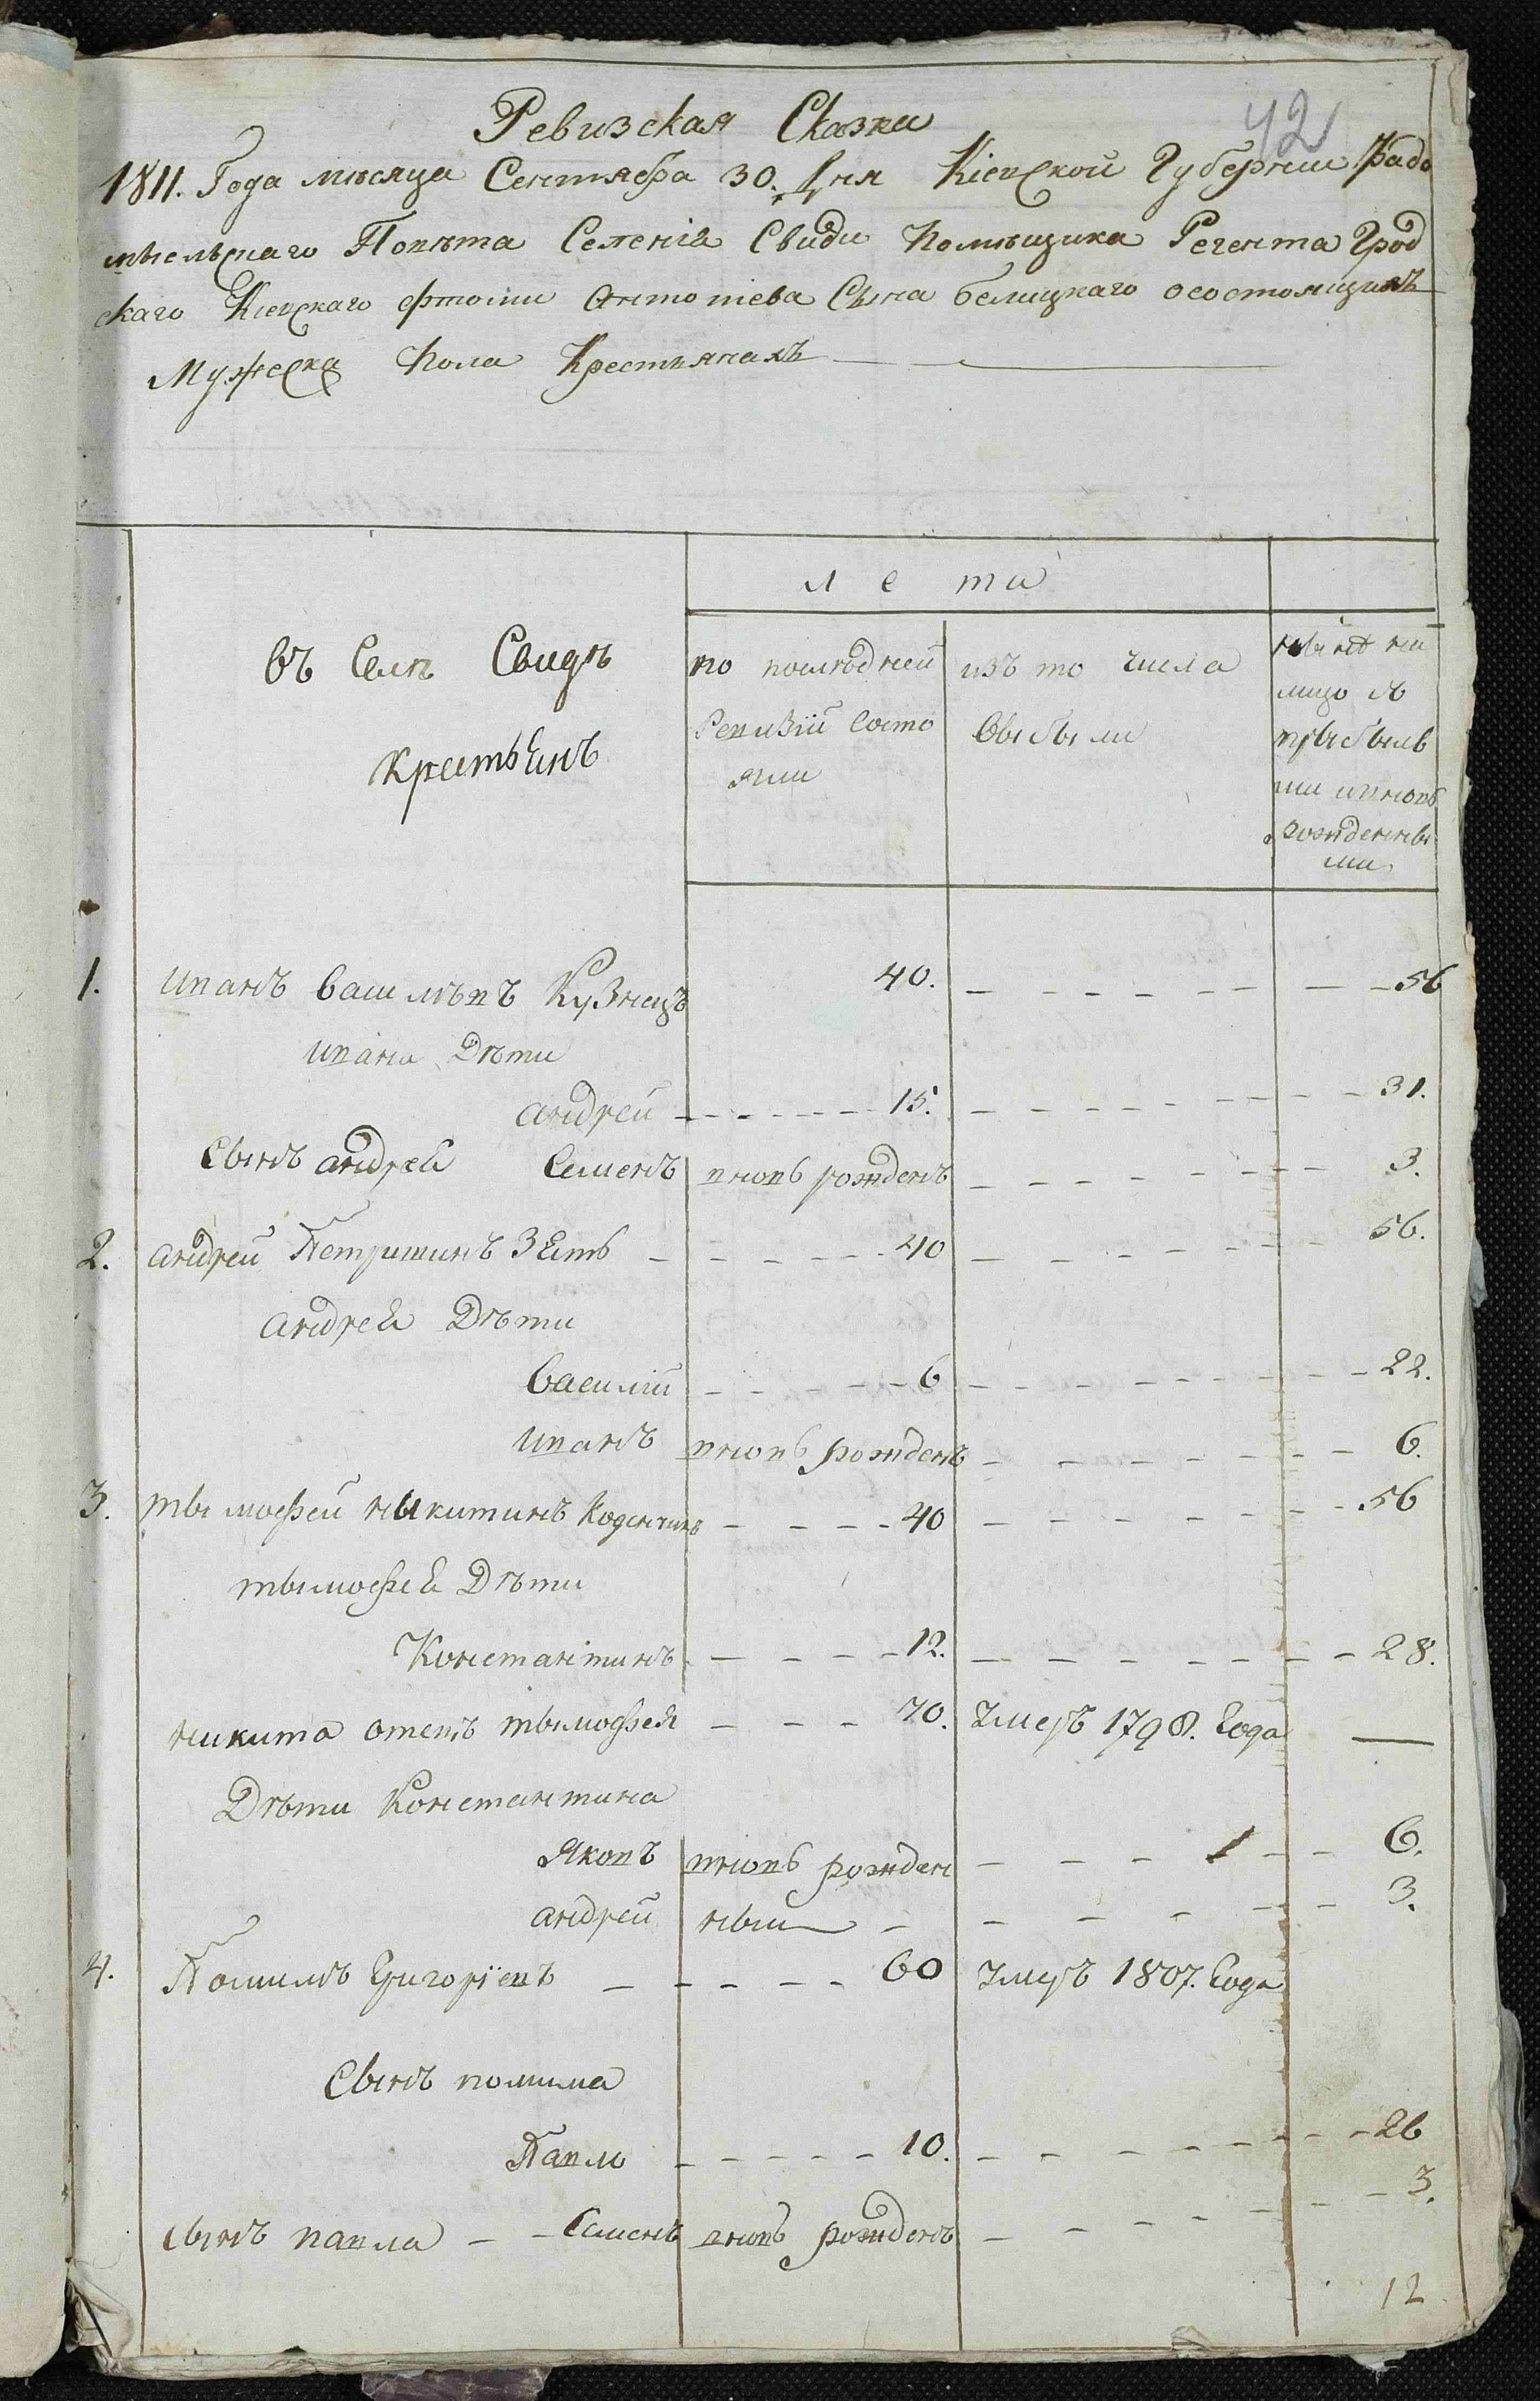 42
Ревизская Сказка
1811. Года мѣсяца Сентября 30. Дня Кіевской Губерніи Радо
мысльскаго Повѣта Селенія Свиди Помѣщика Регента Грод
скаго Кіевскаго Антоніева Сына белицкаго осостоящихъ
Мужеска Пола Крестьянахъ
лета
въ Селѣ Свидѣ
крестьЕнъ
по послѣдней Ревизіи Состо яли
изъ то числа выбыли
нынѣ на лицо съ прыбыв ши ивновь рожденны ми
1. иванъ василѣвъ Кузнецъ 40. 56
ивана Дѣти
андрей 15. 31.
Сынъ андрей Семенъ вновь рожденъ 3.
2. андрей Петришинъ ЗЕть 40 56.
андреЕ Дѣти
василій 6 22.
иванъ вновь рожденъ 6.
3. тымофей ныкитинъ Коденчикъ 40 56
тымофеЕ Дѣти
Константинъ 12. 28.
никита отецъ тымофея 70. Умеръ 1798. Года
Дѣти Константина
Яковъ вновь рожден 1 6.
андрей ныи 3.
4. Помилъ Григоріевъ 60 Умеръ 1807. Года
Сынъ помила
Павло 10. 26
сынъ павла Семенъ вновь рожденъ 3.
12